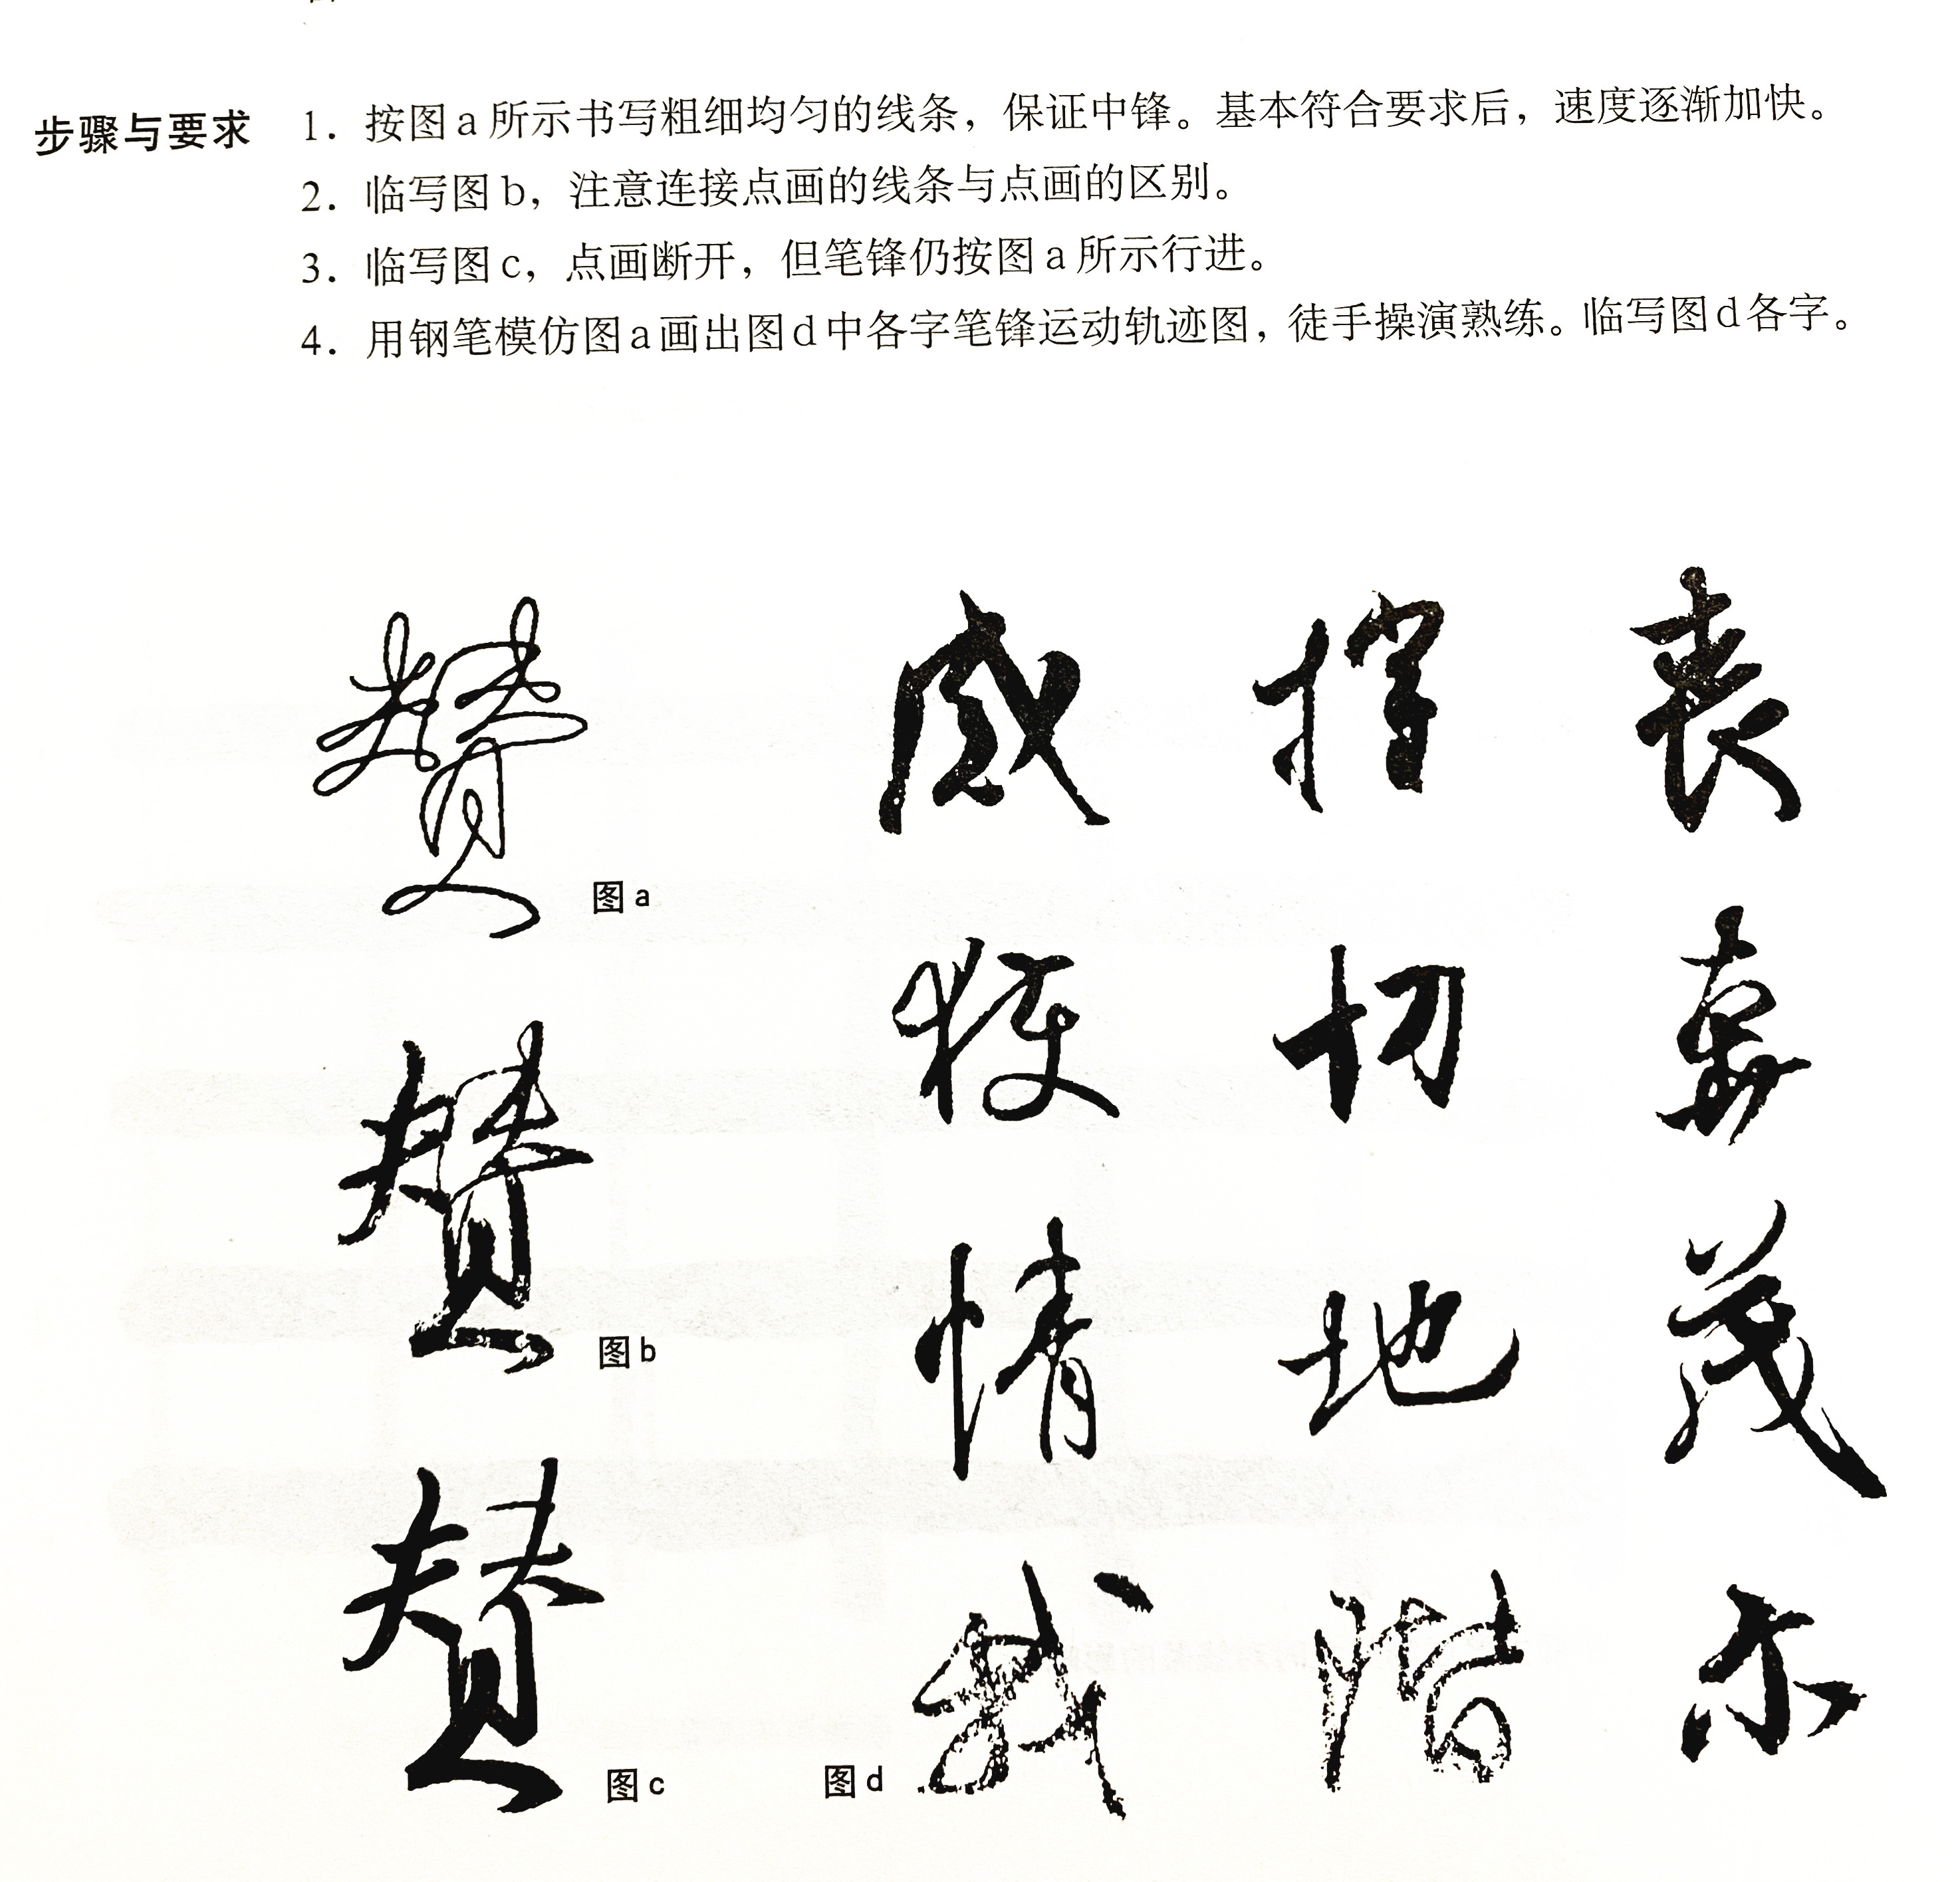 步骤与要求 1. 按图a所示书写粗细均匀的线条，保证中锋。基本符合要求后，速度逐渐加快。
2. 临写图b，注意连接点画的线条与点画的区别。
3. 临写图c，点画断开，但笔锋仍按图a所示行进。
4. 用钢笔模仿图a画出图d中各字笔锋运动轨迹图，徒手操演熟练。临写图d各字。
赞
图a
赞
图b
赞
图c
感
情
切
地
茂
图d